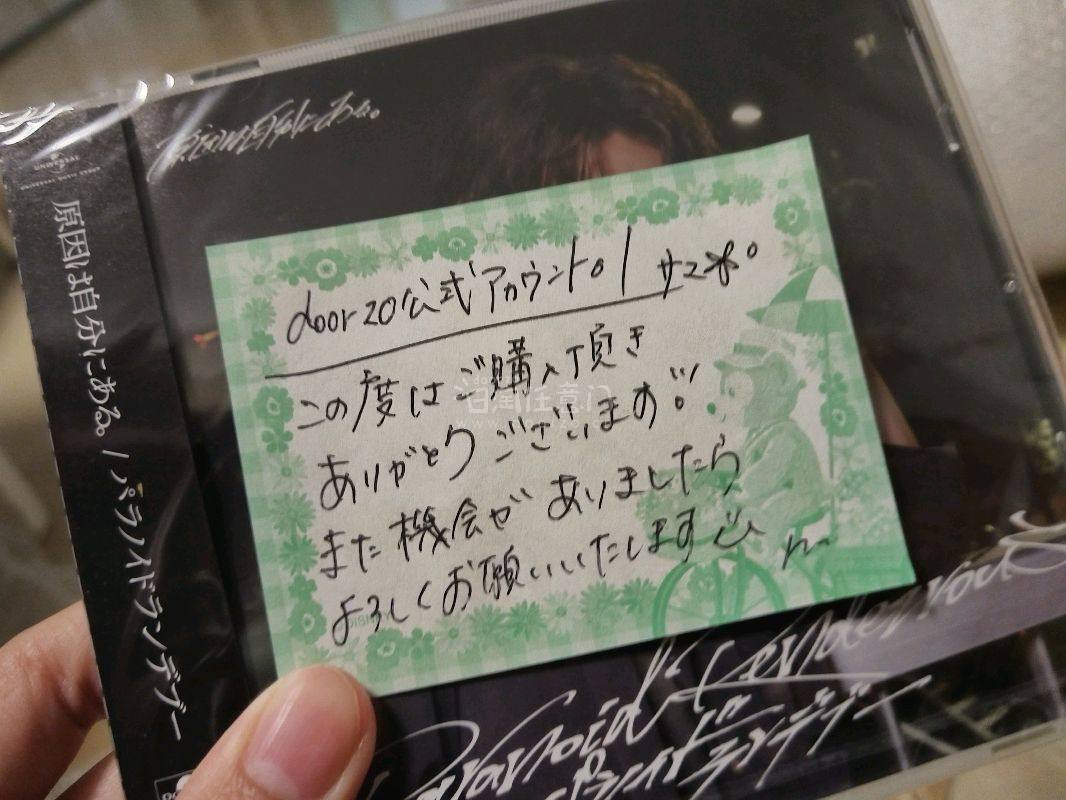 原因は自分にある。
UNIVERSAL
原因は自分にある。/パラノイドランデブー
door20公式アカウント01 サマ
この度はご購入頂き
ありがとうございます
また機会がありましたら
よろしくお願いいたします
Paranoid Rendezvous
パラノイドランデブー